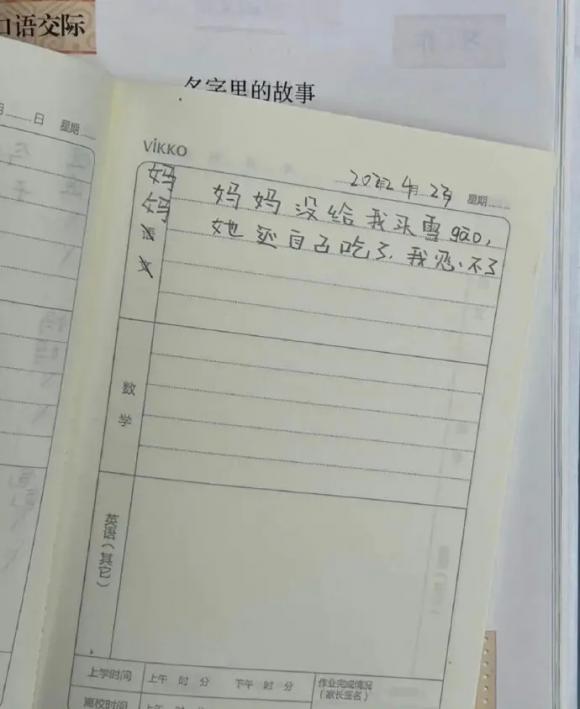 口语交际
名字里的故事
月 日 星期
VIKKO
2022年4月23 星期
妈妈
妈妈没给我买雪gāo,
她还自己吃了.我忍不了
数学
英语(其它)
上学时间 上午 时 分 下午 时 分
作业完成情况
(家长签名)
离校时间 上午 时 分